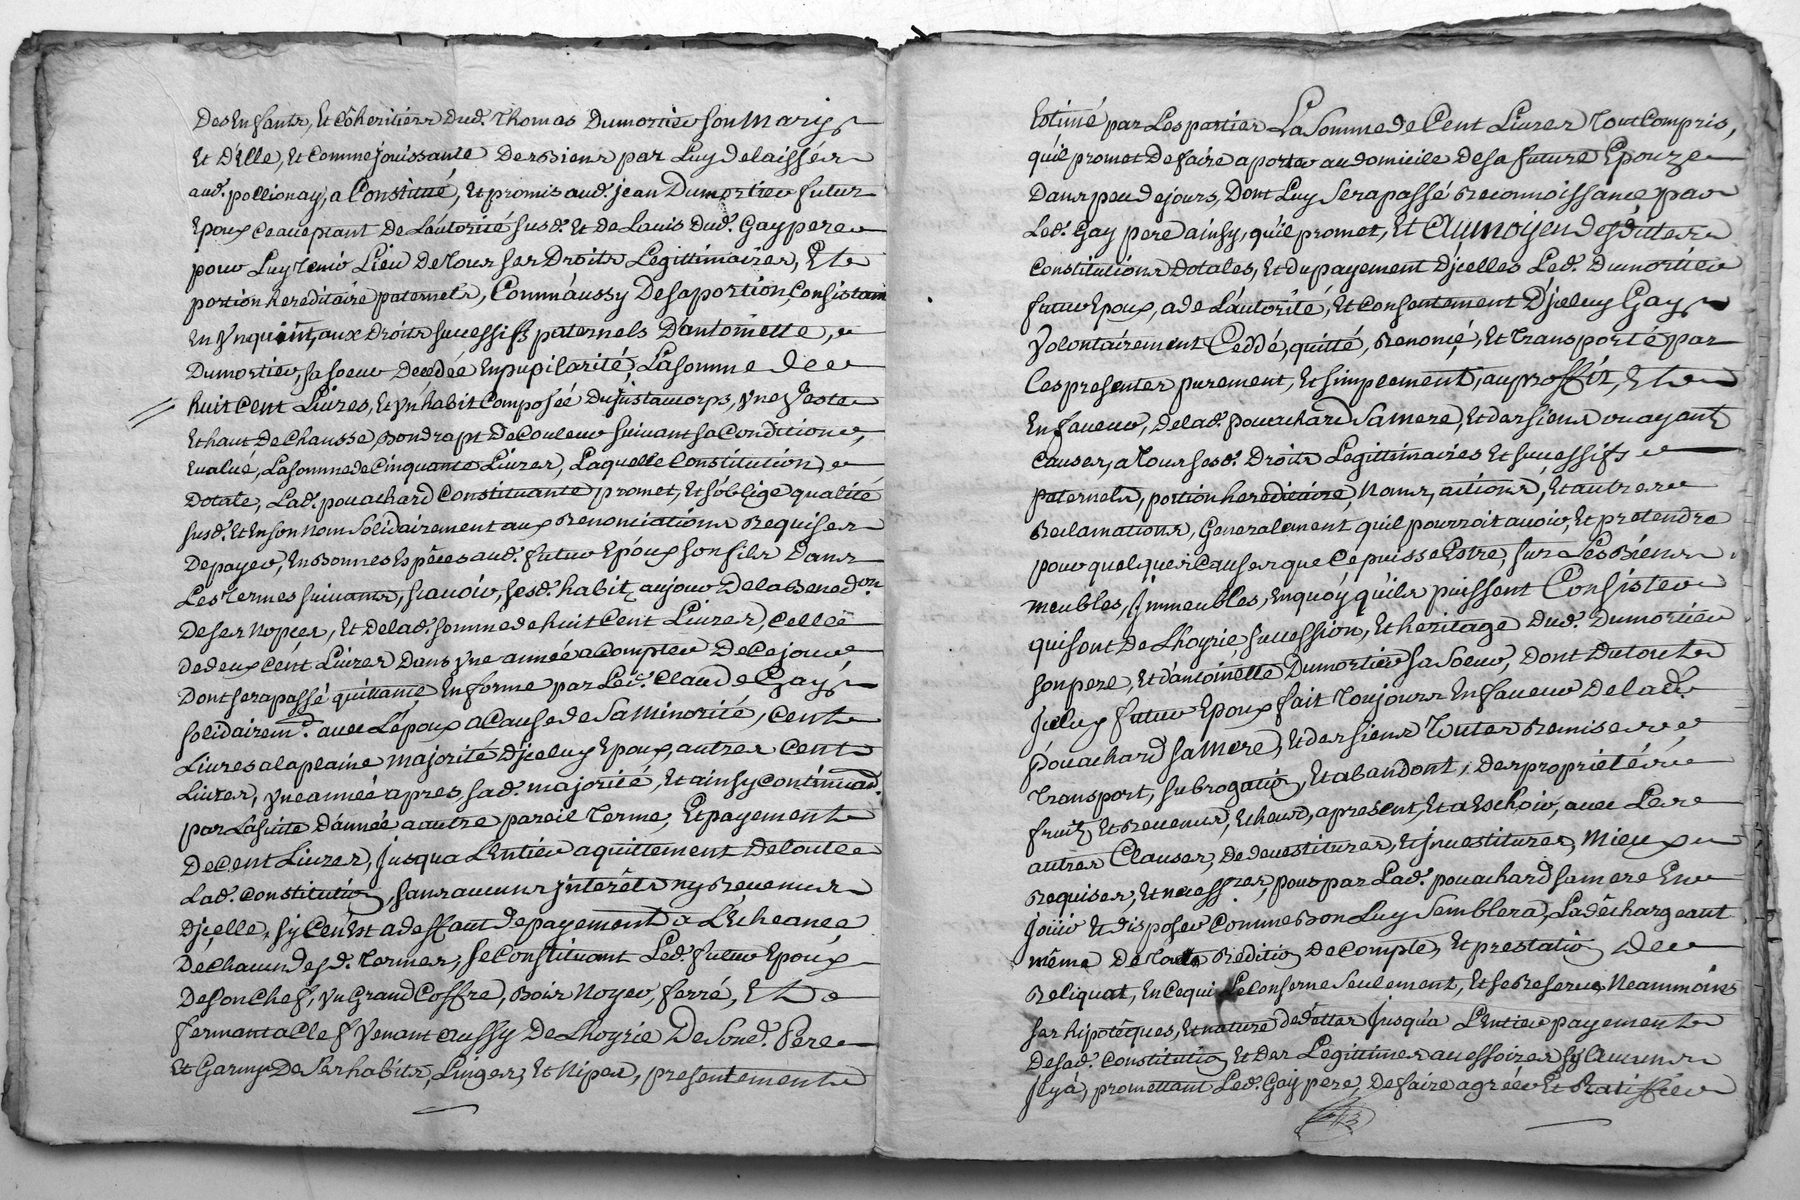 Des Enfants, Et Cohéritiers Dud. Thomas Dumortier son Mary,
Et D'Elle, Et Comme jouissante Des Biens par Luy delaissés
aud. pollionay, a Constitué, Et promis aud. jean Dumortier futur
Epoux ce acceptant de L'autorité susd. Et de Lavis Dud. Gay pere
pour Luy Tenir Lieu De Tous ses Droits Legittimaires, Et
portion hereditaire paternels, Comm'aussy De sa portion, Consistant
En Un quint, aux Droits successifs paternels D'antoinette,
Dumortier, sa soeur Decedée En pupilarité, La somme de
huit Cent Livres, Et Un habit Composé Du justaucorps, Une Veste
Et haut De Chausse, Bon drapt De Couleur suivant sa Condition,
Evalué, La somme de Cinquante Livres, Laquelle Constitution
Dotale, Lad. pouachard Constituante promet, Et s'oblige qualité
susd. Et En son Nom Solidairement aux Renonciations Requises
De payer, En Bonnes Espêces aud. futur Epoux son fils Dans
Les Termes suivants, scavoir, sesd. habit, au jour De la Bened.on
De ses Nopces, Et De lad. somme de huit Cent Livres, Celle
de deux cent Livres Dans Une année a Compter De ce jour
Dont sera passé quittance En forme par Led. Claude Gay
Solidairem.t avec L'époux a Cause de Sa Minorité, Cent
Livres a la plaine Majorité D'jceluy Epoux, autres Cent
Livres, Une année apres, sad. majorité, Et ainsy continuer
par La suite D'année a autre pareil Terme, Et payement
De Cent Livres, jusqu'a L'Entier aquittement De toute
Lad. Constitution, sans aucuns jnterêts ny Revenus
D'jcelle, sy Ce n'Est a deffaut de payement a L'Echeance
De Chacun desd. Termes, Se Constituant Led. futur Epoux
De son Chef, Un Grand Coffre, Bois Noyer, ferré, Et
fermant a Clef Venant aussy De L'hoyrie De Sond. Pere
Et Garny De Ses habits, Linges, Et Nipes, presentement
Estimé par Les parties La Somme de Cent Livres Tout Compris,
qu'il promet De faire aporter au domicile de sa future Epouze
Dans peu de jours, Dont Luy Sera passé Reconnoissance par
Led. Gay pere ainsy, qu'il promet, Et Au moyen desdittes
Constitutions dotales, Et Du payement D'jcelles Led. Dumortier
futur Epoux, a de L'autorité, Et Consentement D'jceluy Gay
Volontairement Ceddé, quitté, Renoncé, Et Transporté par
Ces presentes purement, Et simplement, au proffit, Et
En faveur, de lad. pouachard Sa mere, Et des siens ou ayant
Causes, a Tous sesd. Droits Legittimaires Et successifs
paternels, portion hereditaire, Noms, actions, Et autres
Reclamations, Generalement qu'il pourroit avoir, Et pretendre
pour quelques Causes que Ce puisse Estre, sur Les Biens
meubles, Jmmeubles, En quoy qu'ils puissent Consister
qui sont De L'hoyrie, succession, Et heritage Dud. Dumortier
son pere, Et d'antoinette Dumortier sa Soeur, Dont Du tout
Jceluy futur Epoux fait Toujours En faveur De lad.
Pouachard Sa Mere, Et des siens Toutes Remises
Transport, subrogation, Et abandont, des proprietés
fruits Et Revenus, Echeus, a present, Et a Eschoir, avec Les
autres Clauses, de devestitures, Et jnvestitures, Mieux
Requises, Et necess.res, pour par Lad. pouachard sa mere En
jouir Et disposer Comme Bon Luy Semblera, La déchargeant
même De Toute Reddition De Compte, Et prestation De
Reliquat, En Ce qui Le Conserne Seulement, Et se Reserve Neammoins
ses hipotêques, Et nature De dettes jusqu'a L'Entier payement
Desad. Constitution Et Des Legittimes accessoires sy aucunes
Jl y a, promettant Led. Gay pere, De faire agréer Et Ratiffier